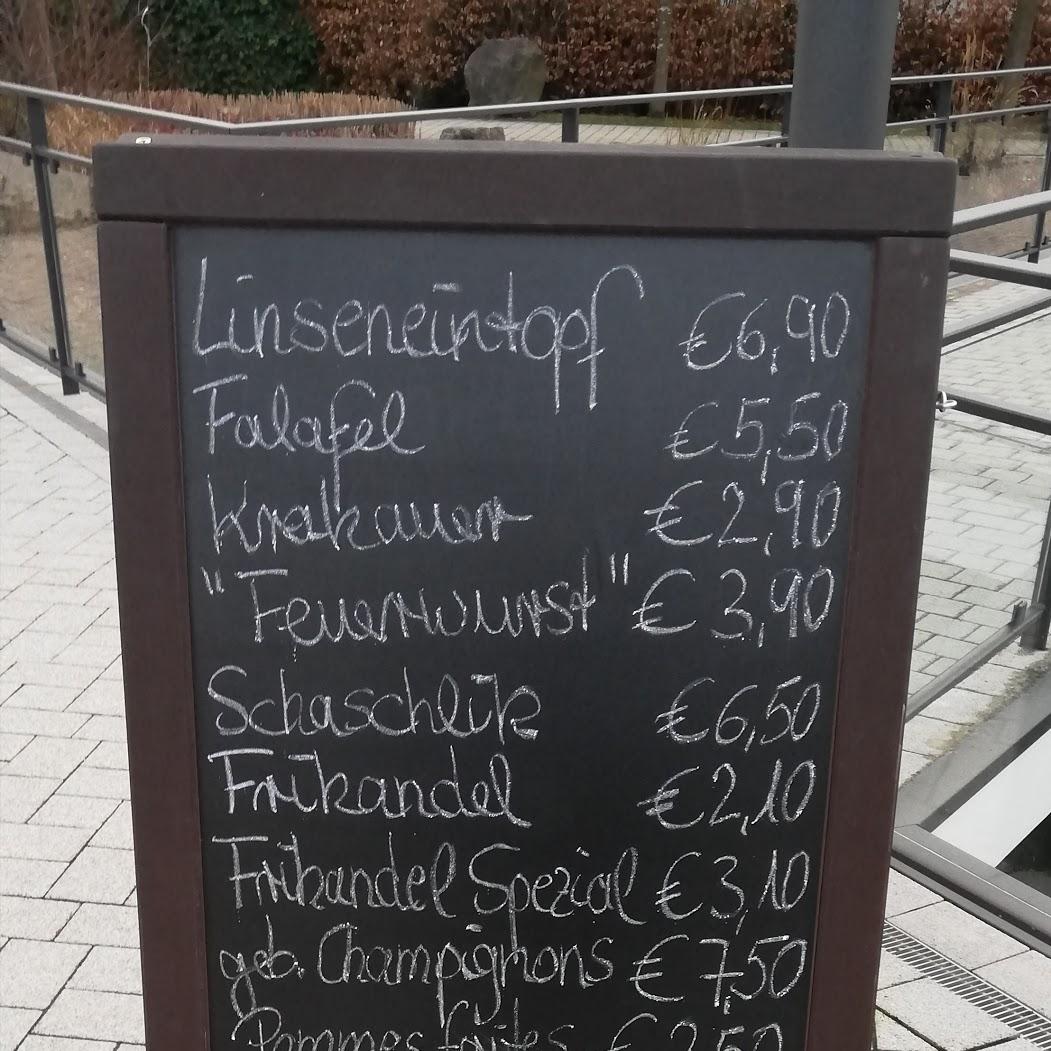 Linseneintopf €6,90
Falafel €5,50
Krakauer €2,90
"Feuerwurst" € 3,90
Schaschlik €6,50
Frikandel €2,10
Frikandel Spezial €3,10
geb. Champignons € 7,50
Pommes frites € 2,50